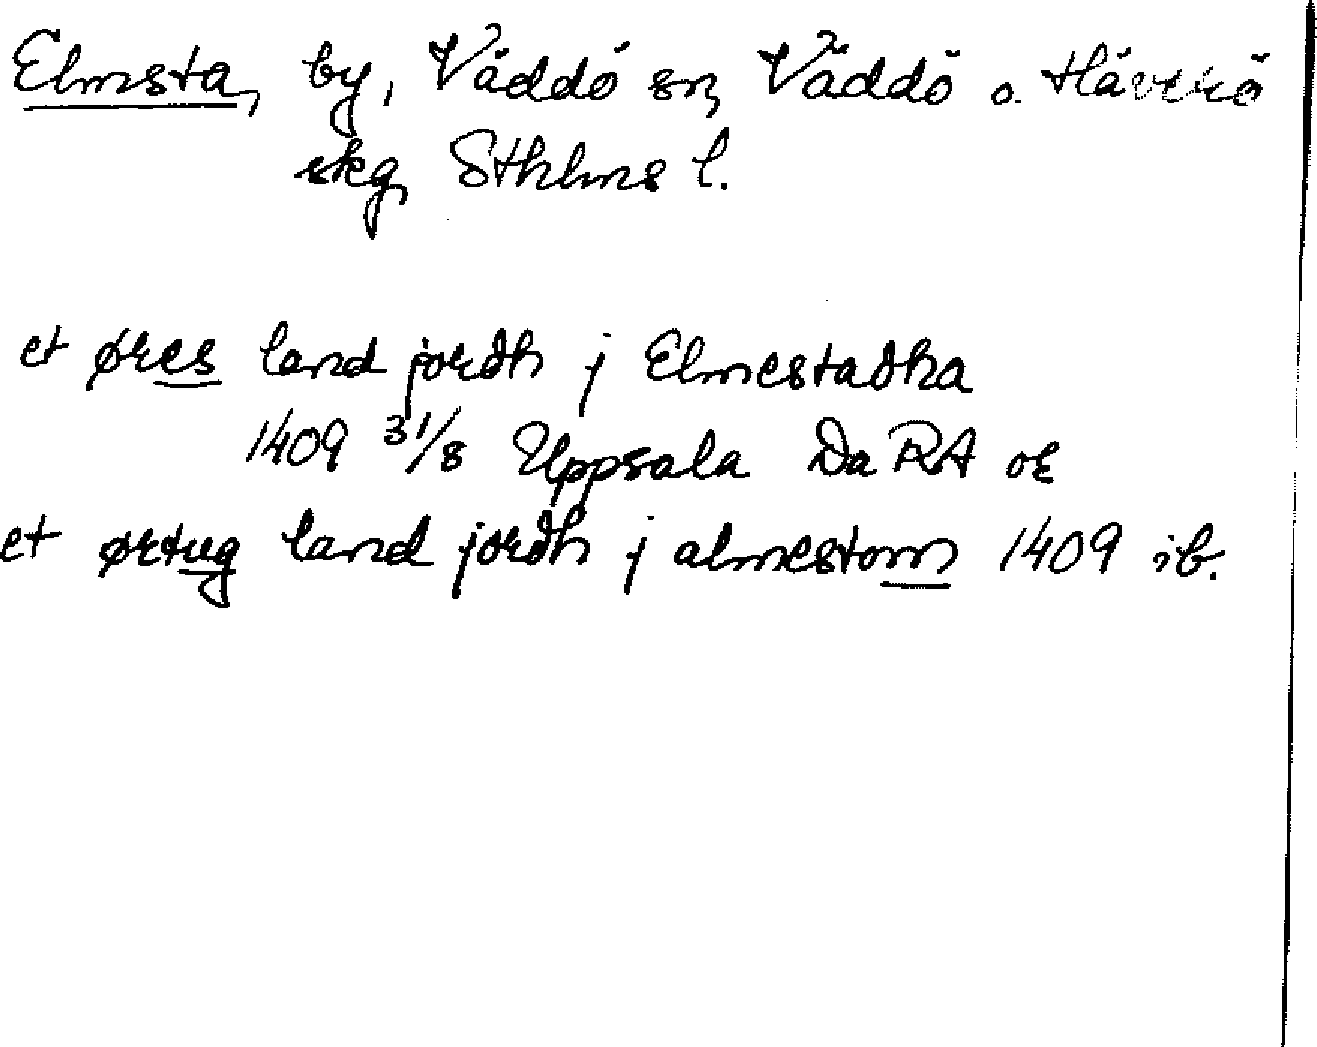 Elmsta, by, Väddö sn, Väddö o. Häverö
skg, Sthlms l.
et øres land jordh j Elmestadha
1409 31/8 Uppsala Da RA or
et ørtug land jordh j almestom 1409 ib.